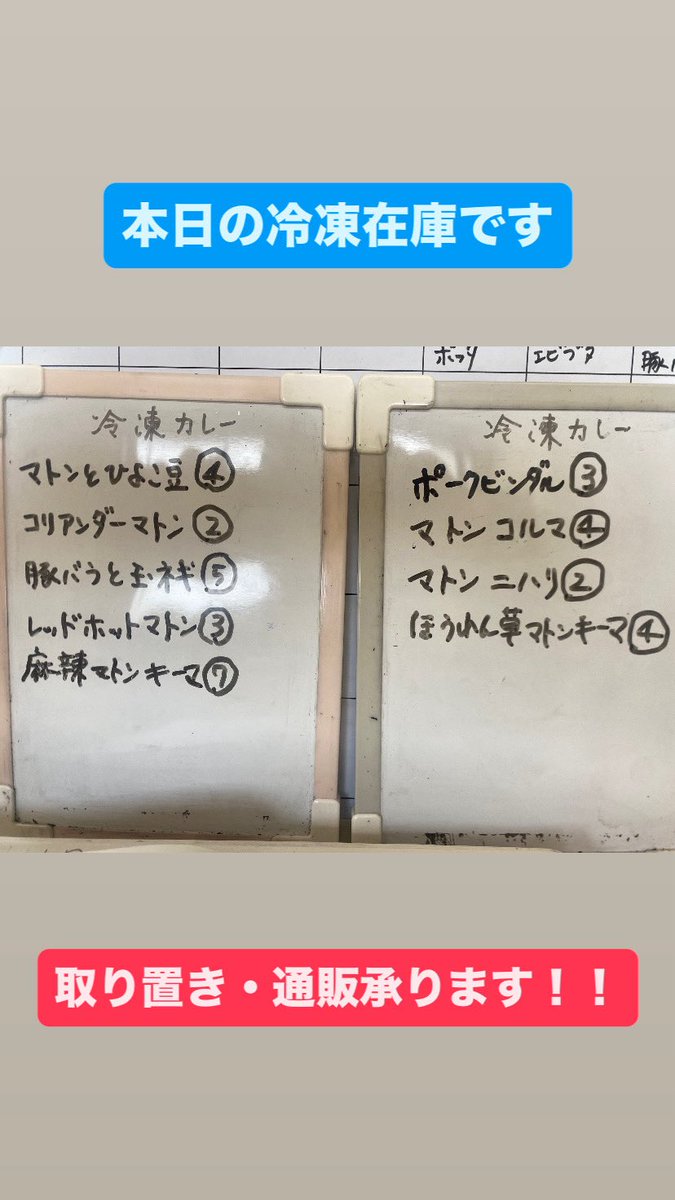 本日の冷凍在庫です
エビブタ
冷凍カレー
マトンとひよこ豆④
コリアンダーマトン②
豚バラと玉ネギ⑤
レッドホットマトン③
麻辣マトンキーマ⑦
冷凍カレー
ポークビンダル③
マトンコルマ④
マトンニハリ②
ほうれん草マトンキーマ④
取り置き・通販承ります！！